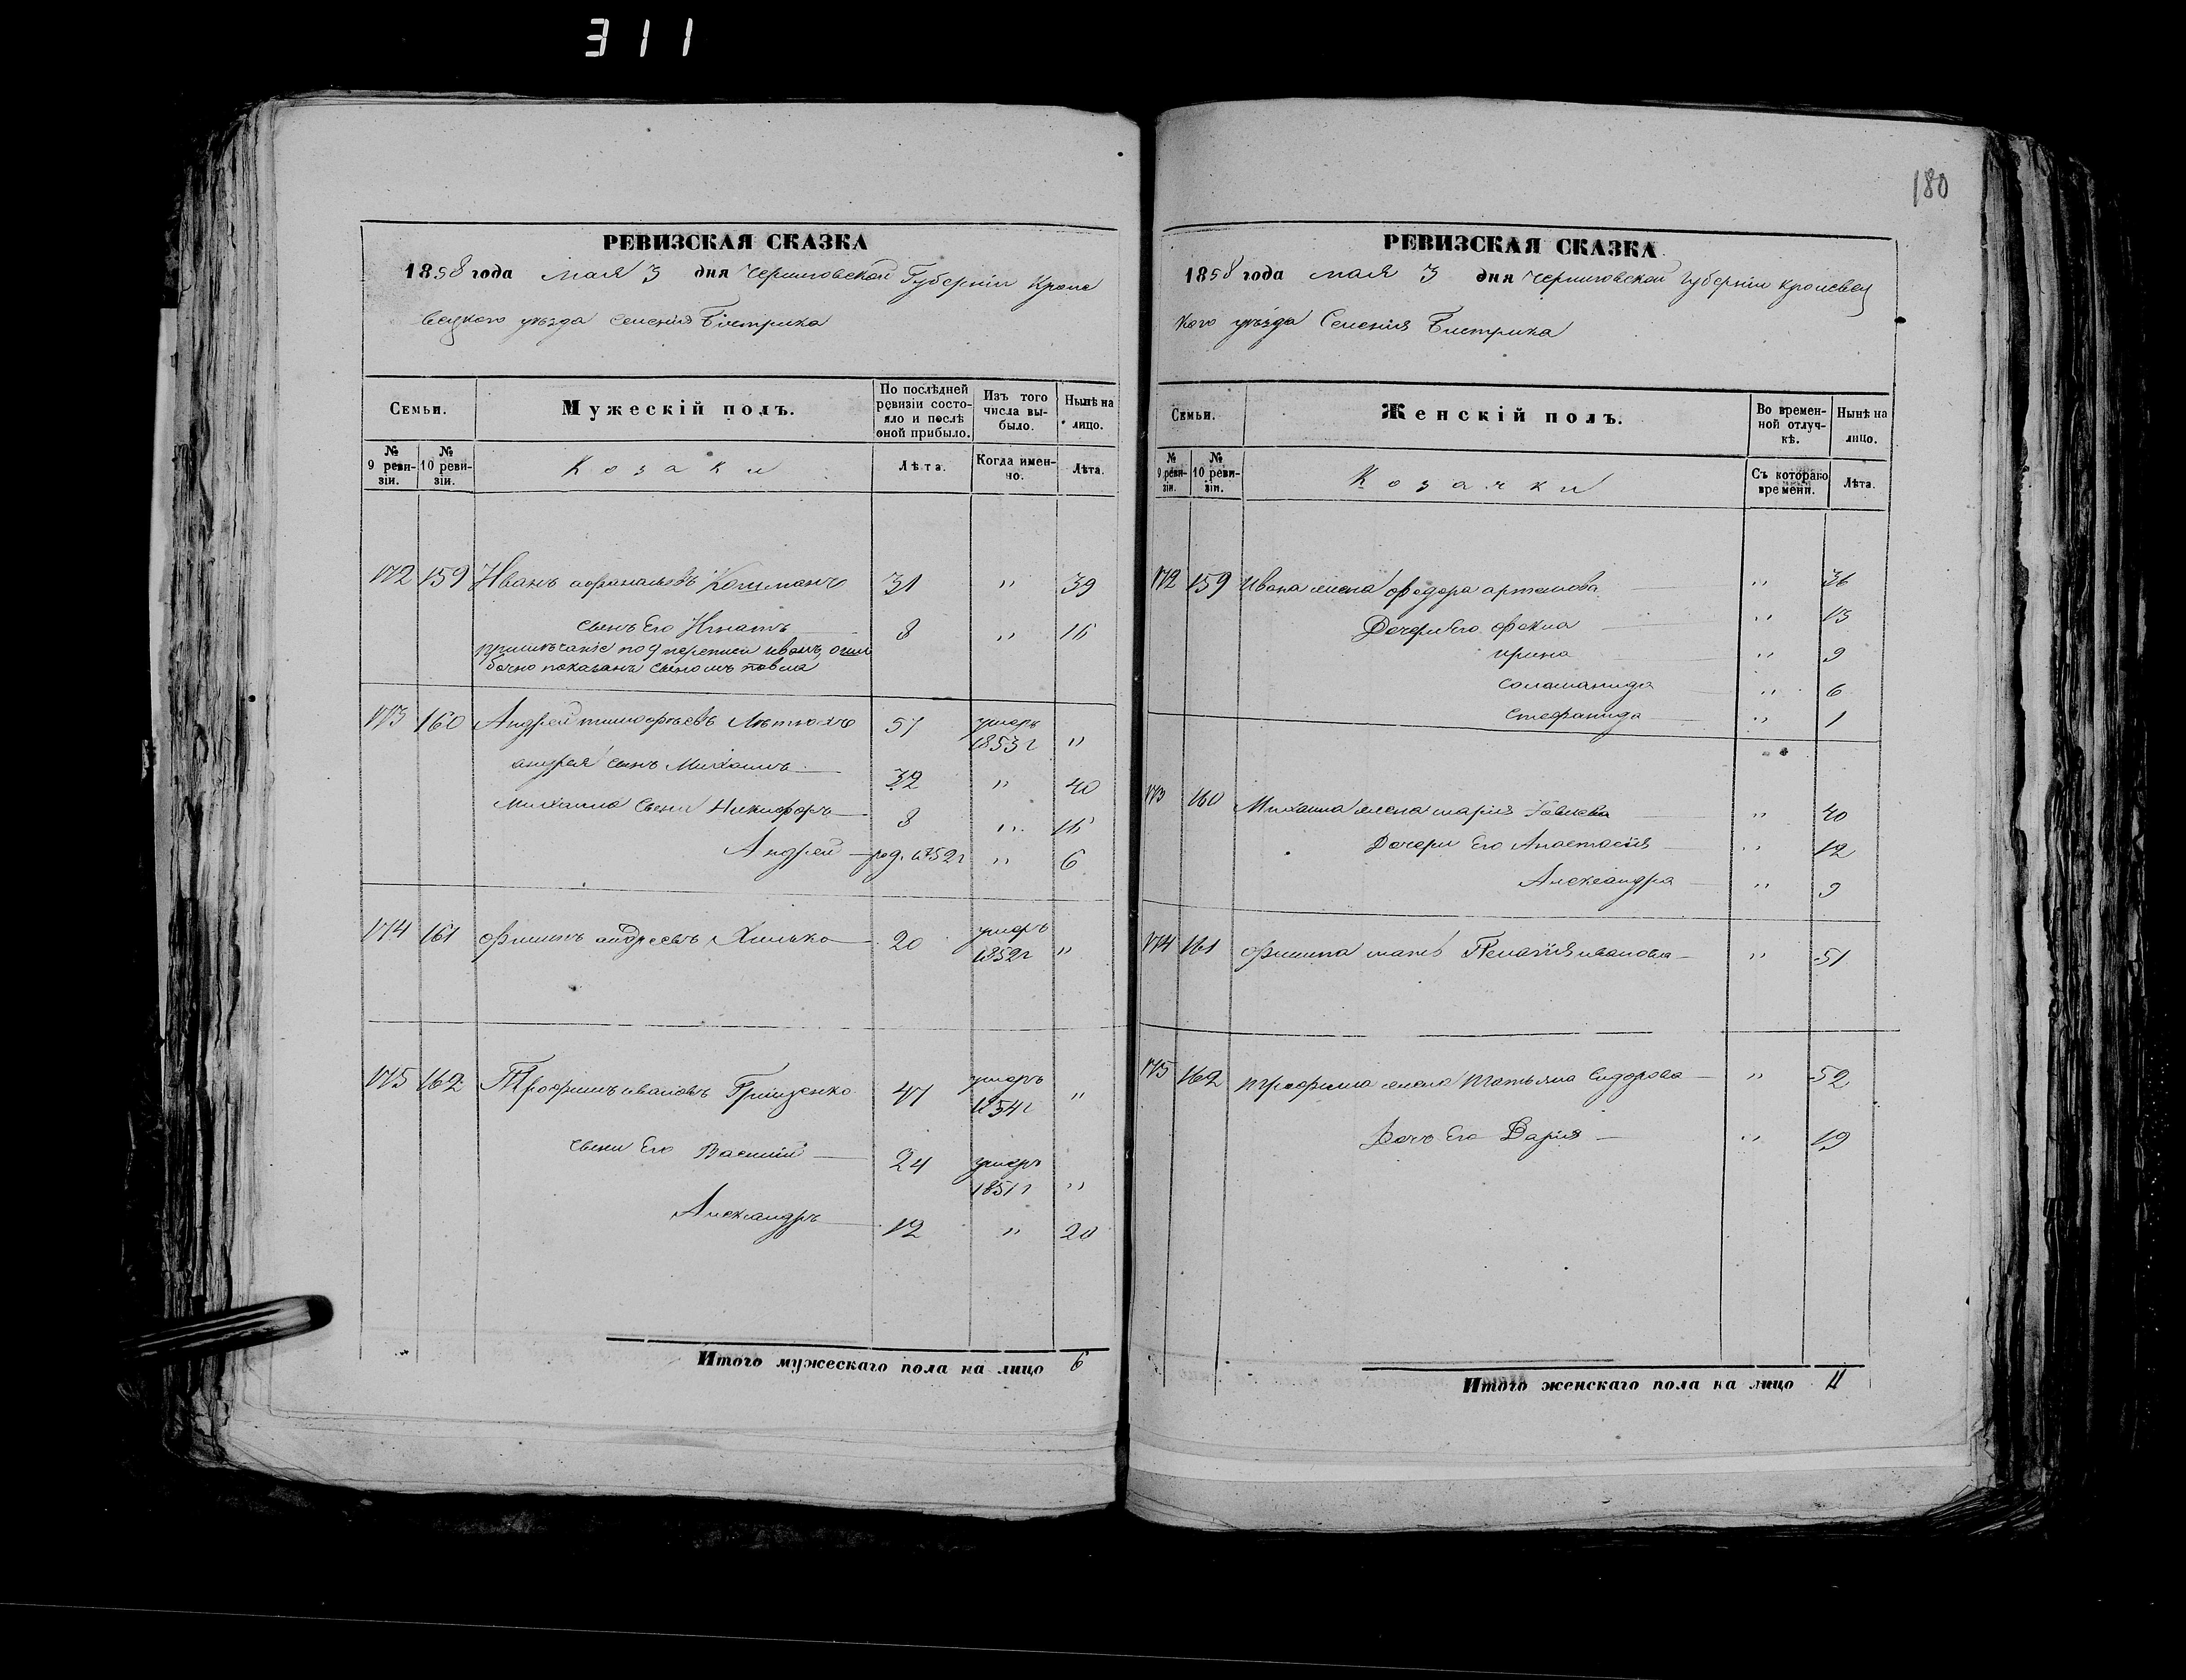 311
180
РЕВИЗСКАЯ СКАЗКА
1858 года мая 3 дня Черниговской Губерніи Кроле
вецкого уѣзда Селенія Бистрика
Семьи. Мужескій полъ. По послѣдней ревизіи состояло и послѣ оной прибыло. Изъ того числа выбыло. Нынѣ на лицо.
№ 9 ревизіи. № 10 ревизіи. Козаки Лѣта. Когда именно. Лѣта.
172 159 Иванъ Афанасьевъ 31 " 39
сынъ Его Игнатъ 8 " 16
примѣчаніе по 9 переписи иванъ, оши
бочно показанъ сыномъ павла
173 160 Андрей тимофѣевъ 57 умеръ
1853 г "
андрея сынъ Михаилъ 32 " 40
Михаила сыни Никифоръ 8 " 16
Андрей род. 1852 г " 6
174 161 Филипъ андреевъ Хилько 20 умеръ
1852 г "
175 162 Трофимъ ивановъ Грищенко 47 умеръ
1854 г "
сыни Его Василій 24 умеръ
1851 г "
Александръ 12 " 20
Итого мужескаго пола на лицо 6
РЕВИЗСКАЯ СКАЗКА
1858 года мая 3 дня Черниговской Губерніи Кролевец
кого уѣзда Селенія Бистрика
Семьи. Женскій полъ. Во временной отлучкѣ. Нынѣ на лицо.
№ 9 ревизіи. № 10 ревизіи. Козачки Съ котораго времени. Лѣта.
172 159 Ивана жена федора артемова " 36
Дочери Его фекла " 13
ирина " 9
соломанида " 6
стефанида " 1
173 160 Михаила жена марія " 40
Дочери Его Анастасія " 12
Александра " 9
174 161 Филипа мать Пелагія иванова " 51
175 162 трофима жена Татьяна Сидорова " 52
Дочь Его Дарія " 19
Итого женскаго пола на лицо 11